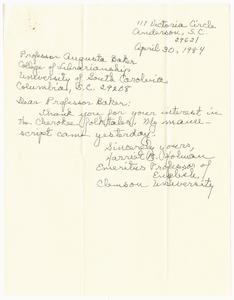 117 Victoria Circle
Anderson, S.C.
29621
April 30, 1984
Professor Augusta Baker
College of Librarianship
University of South Carolina
Columbia, S.C. 29208
Dear Professor Baker:
Thank you for your interest in
the Cherokee folktales. My manu-
script came yesterday.
Sincerely yours,
Harriet R. Holman
Emeritus Professor of
English,
Clemson University